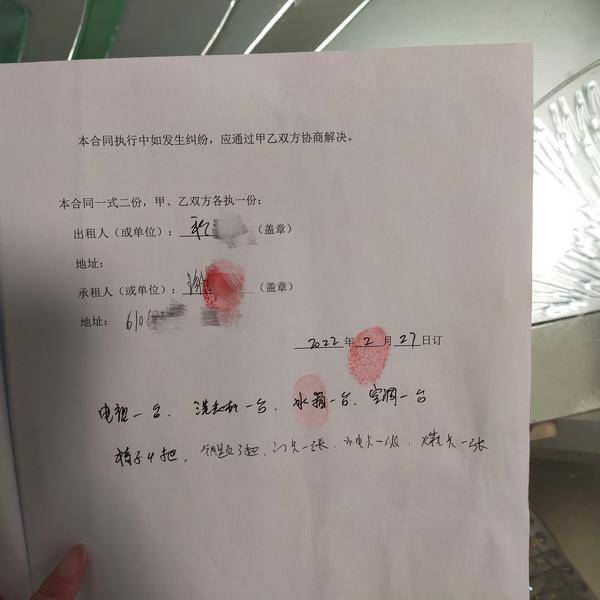 本合同执行中如发生纠纷，应通过甲乙双方协商解决。
本合同一式二份，甲、乙双方各执一份；
出租人（或单位）：（盖章）
地址：
承租人（或单位）：（盖章）
地址： 610
2022年2月27日订
电视一台、洗衣机一台、冰箱一台、空调一台
椅子4把、钥匙3把、门卡一张、水电卡一张、煤卡一张